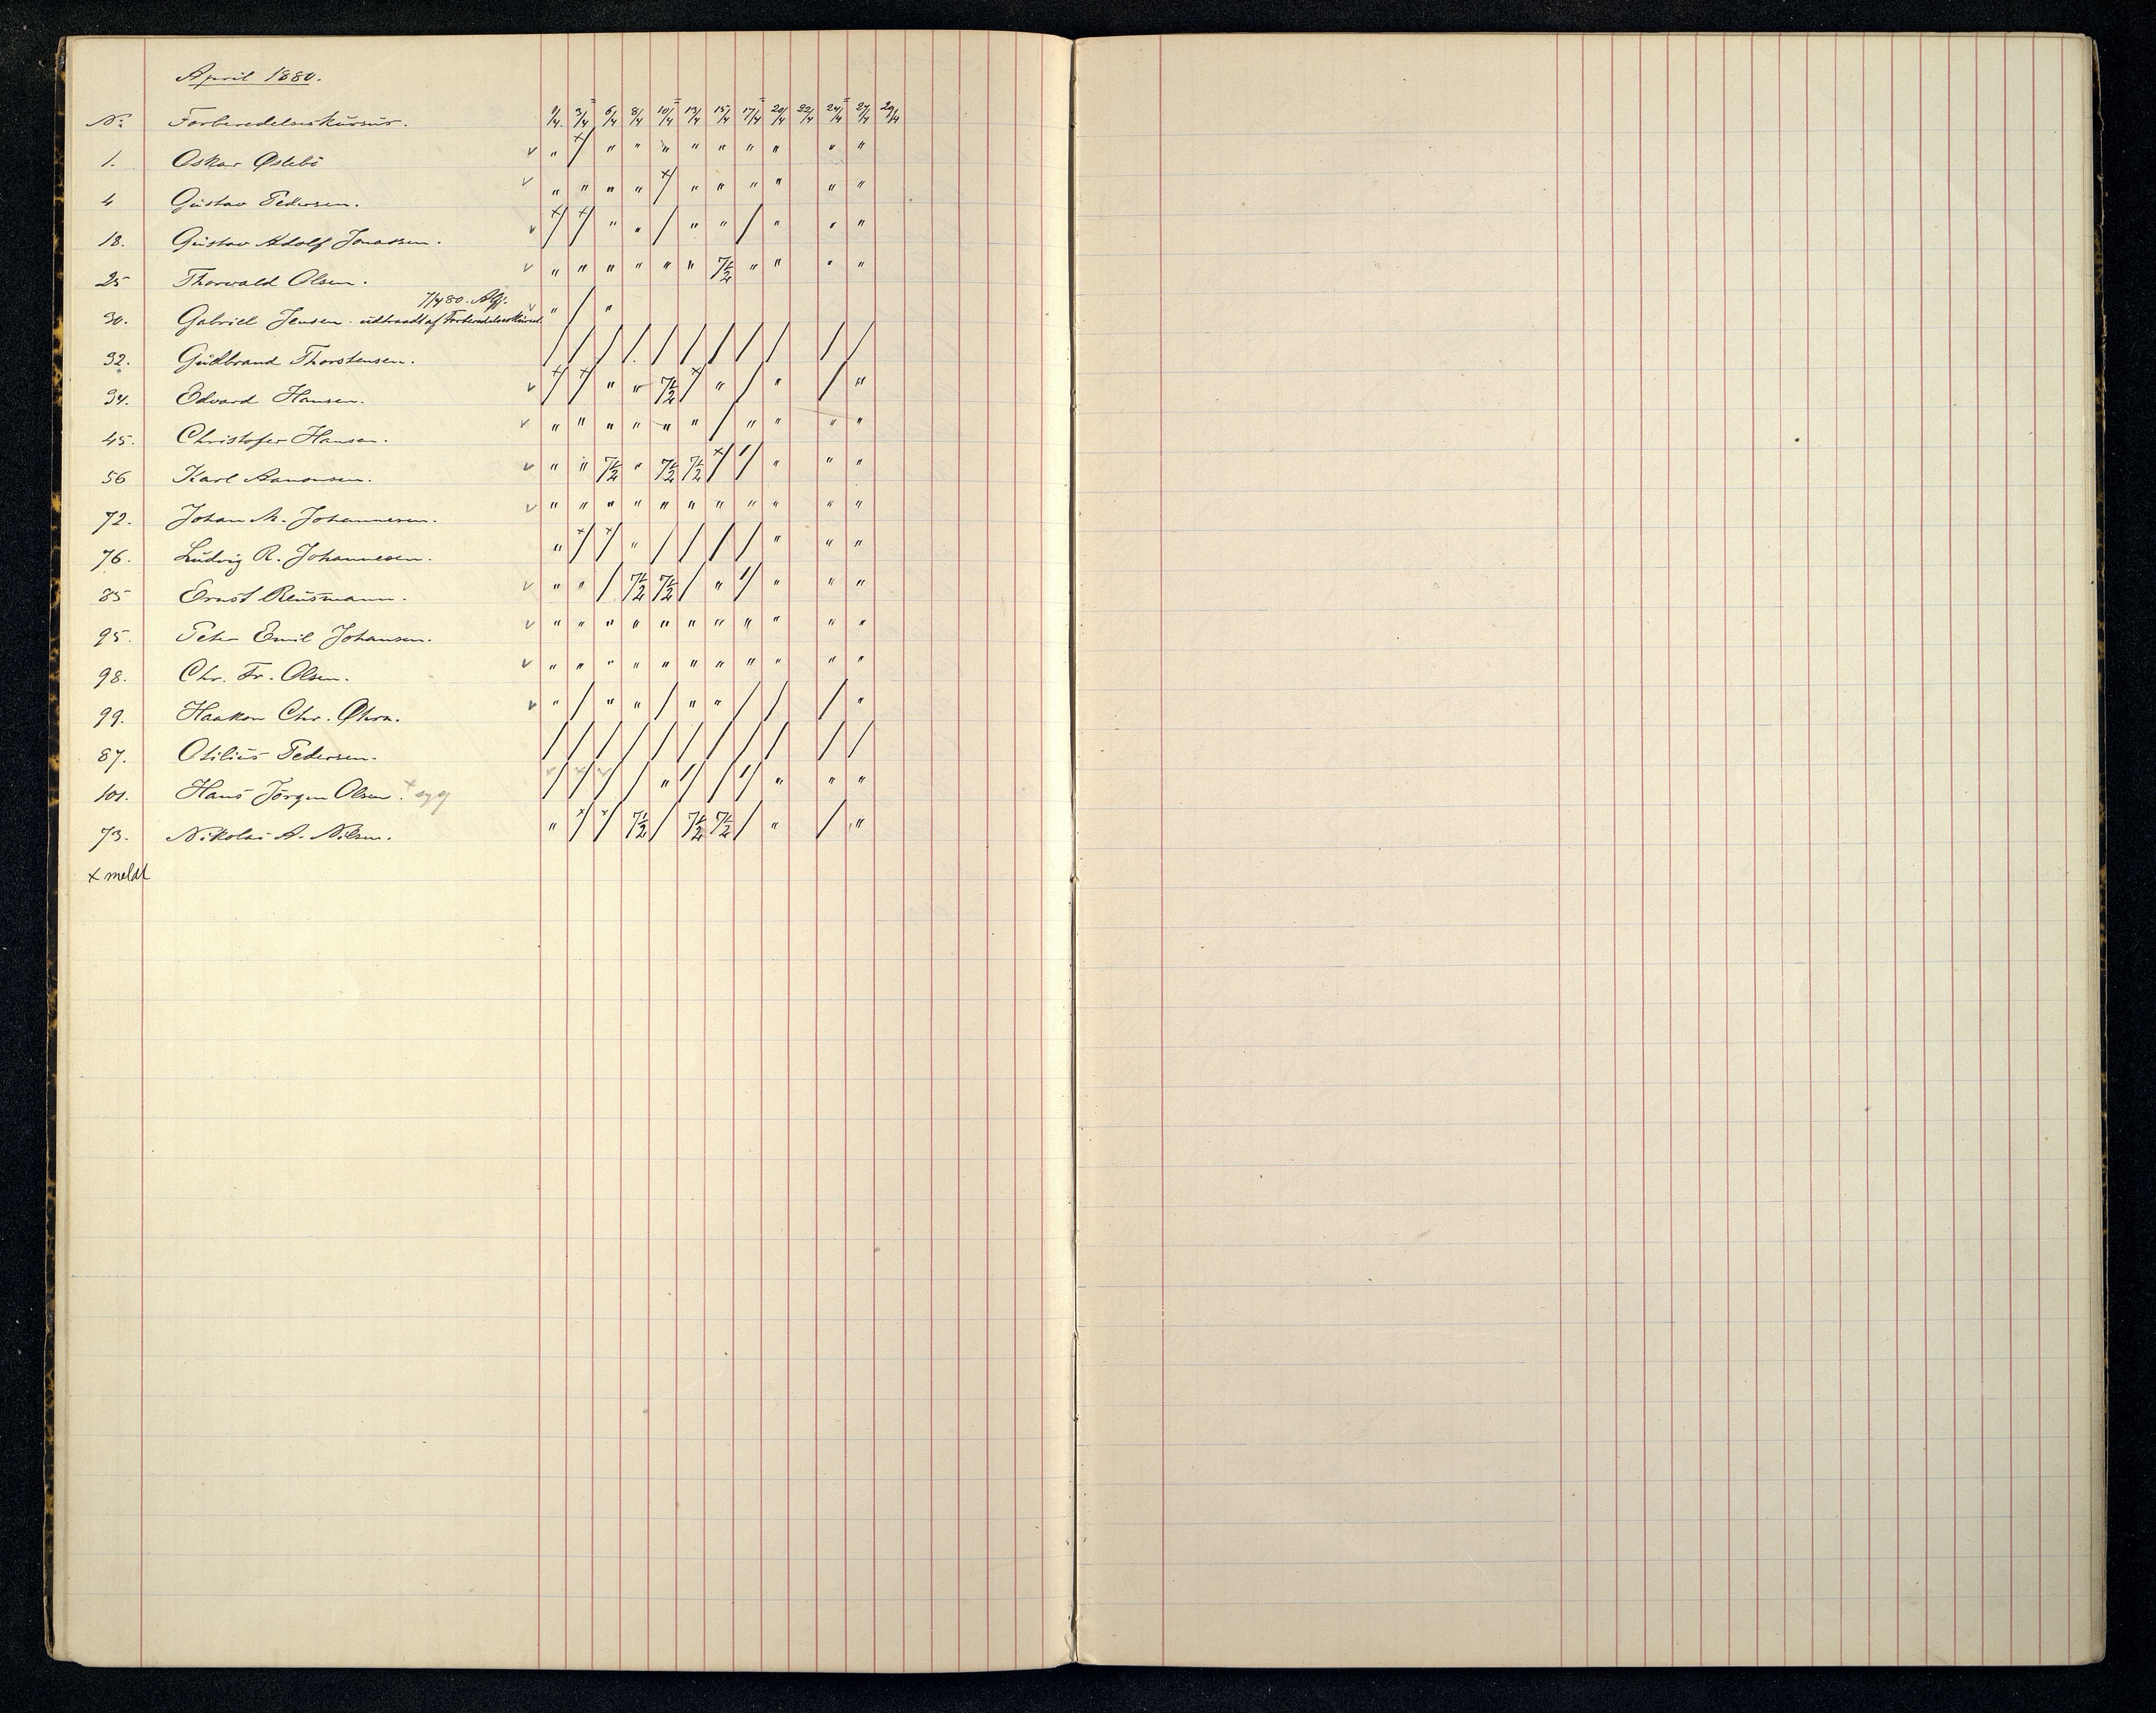 April 1880.
No Forberedelseskursus. 1/4. 3/4 6/4 8/4 10/4 13/4 15/4 17/4 20/4 22/4 24/4 27/4 29/4
1. Oskar Østebö v " x/ " " " " " " " " "
4 Gustav Pedersen. v " " " " x/ " " " " " "
18. Gustav Adolf Jonassen. v x/ x/ " " / " " / " " "
25 Thorvald Olsen. v " " " " " " 7½ " " " "
7/4 80. Afg.
30. Gabriel Jensen. udtraadt af Forberedelseskurset. v " / "
32. Gudbrand Thorstensen. / / / / / / / / / / /
34. Edvard Hansen. v x/ x/ " " 7½ x/ " / " / "
45. Christofer Hansen. v " " " " " " / " " " "
56 Karl Aanonsen. v " " 7½ " 7½ 7½ x/ 1/ " " "
72. Johan M. Johannesen. v " " " " " " " " " " "
76. Ludvig R. Johannesen. " x/ x/ " / / / / " " "
85 Ernst Reusmann. v " " / 7½ 7½ / " 1/ " " "
95. Peter Emil Johansen. v " " " " " " " " " " "
98. Chr. Fr. Olsen. v " " " " " " " " " " "
99. Haakon Chr. Øhrn. v " / " " / " " / / / "
87. Otilius Pedersen. / / / / / / / / / / /
101. Hans Jörgen Olsen. x syg / / / / " 1/ / 1/ " " "
73. Nikolai A. Nilsen. " x/ x/ 7½ / 7½ 7½ / " / "
x meldt